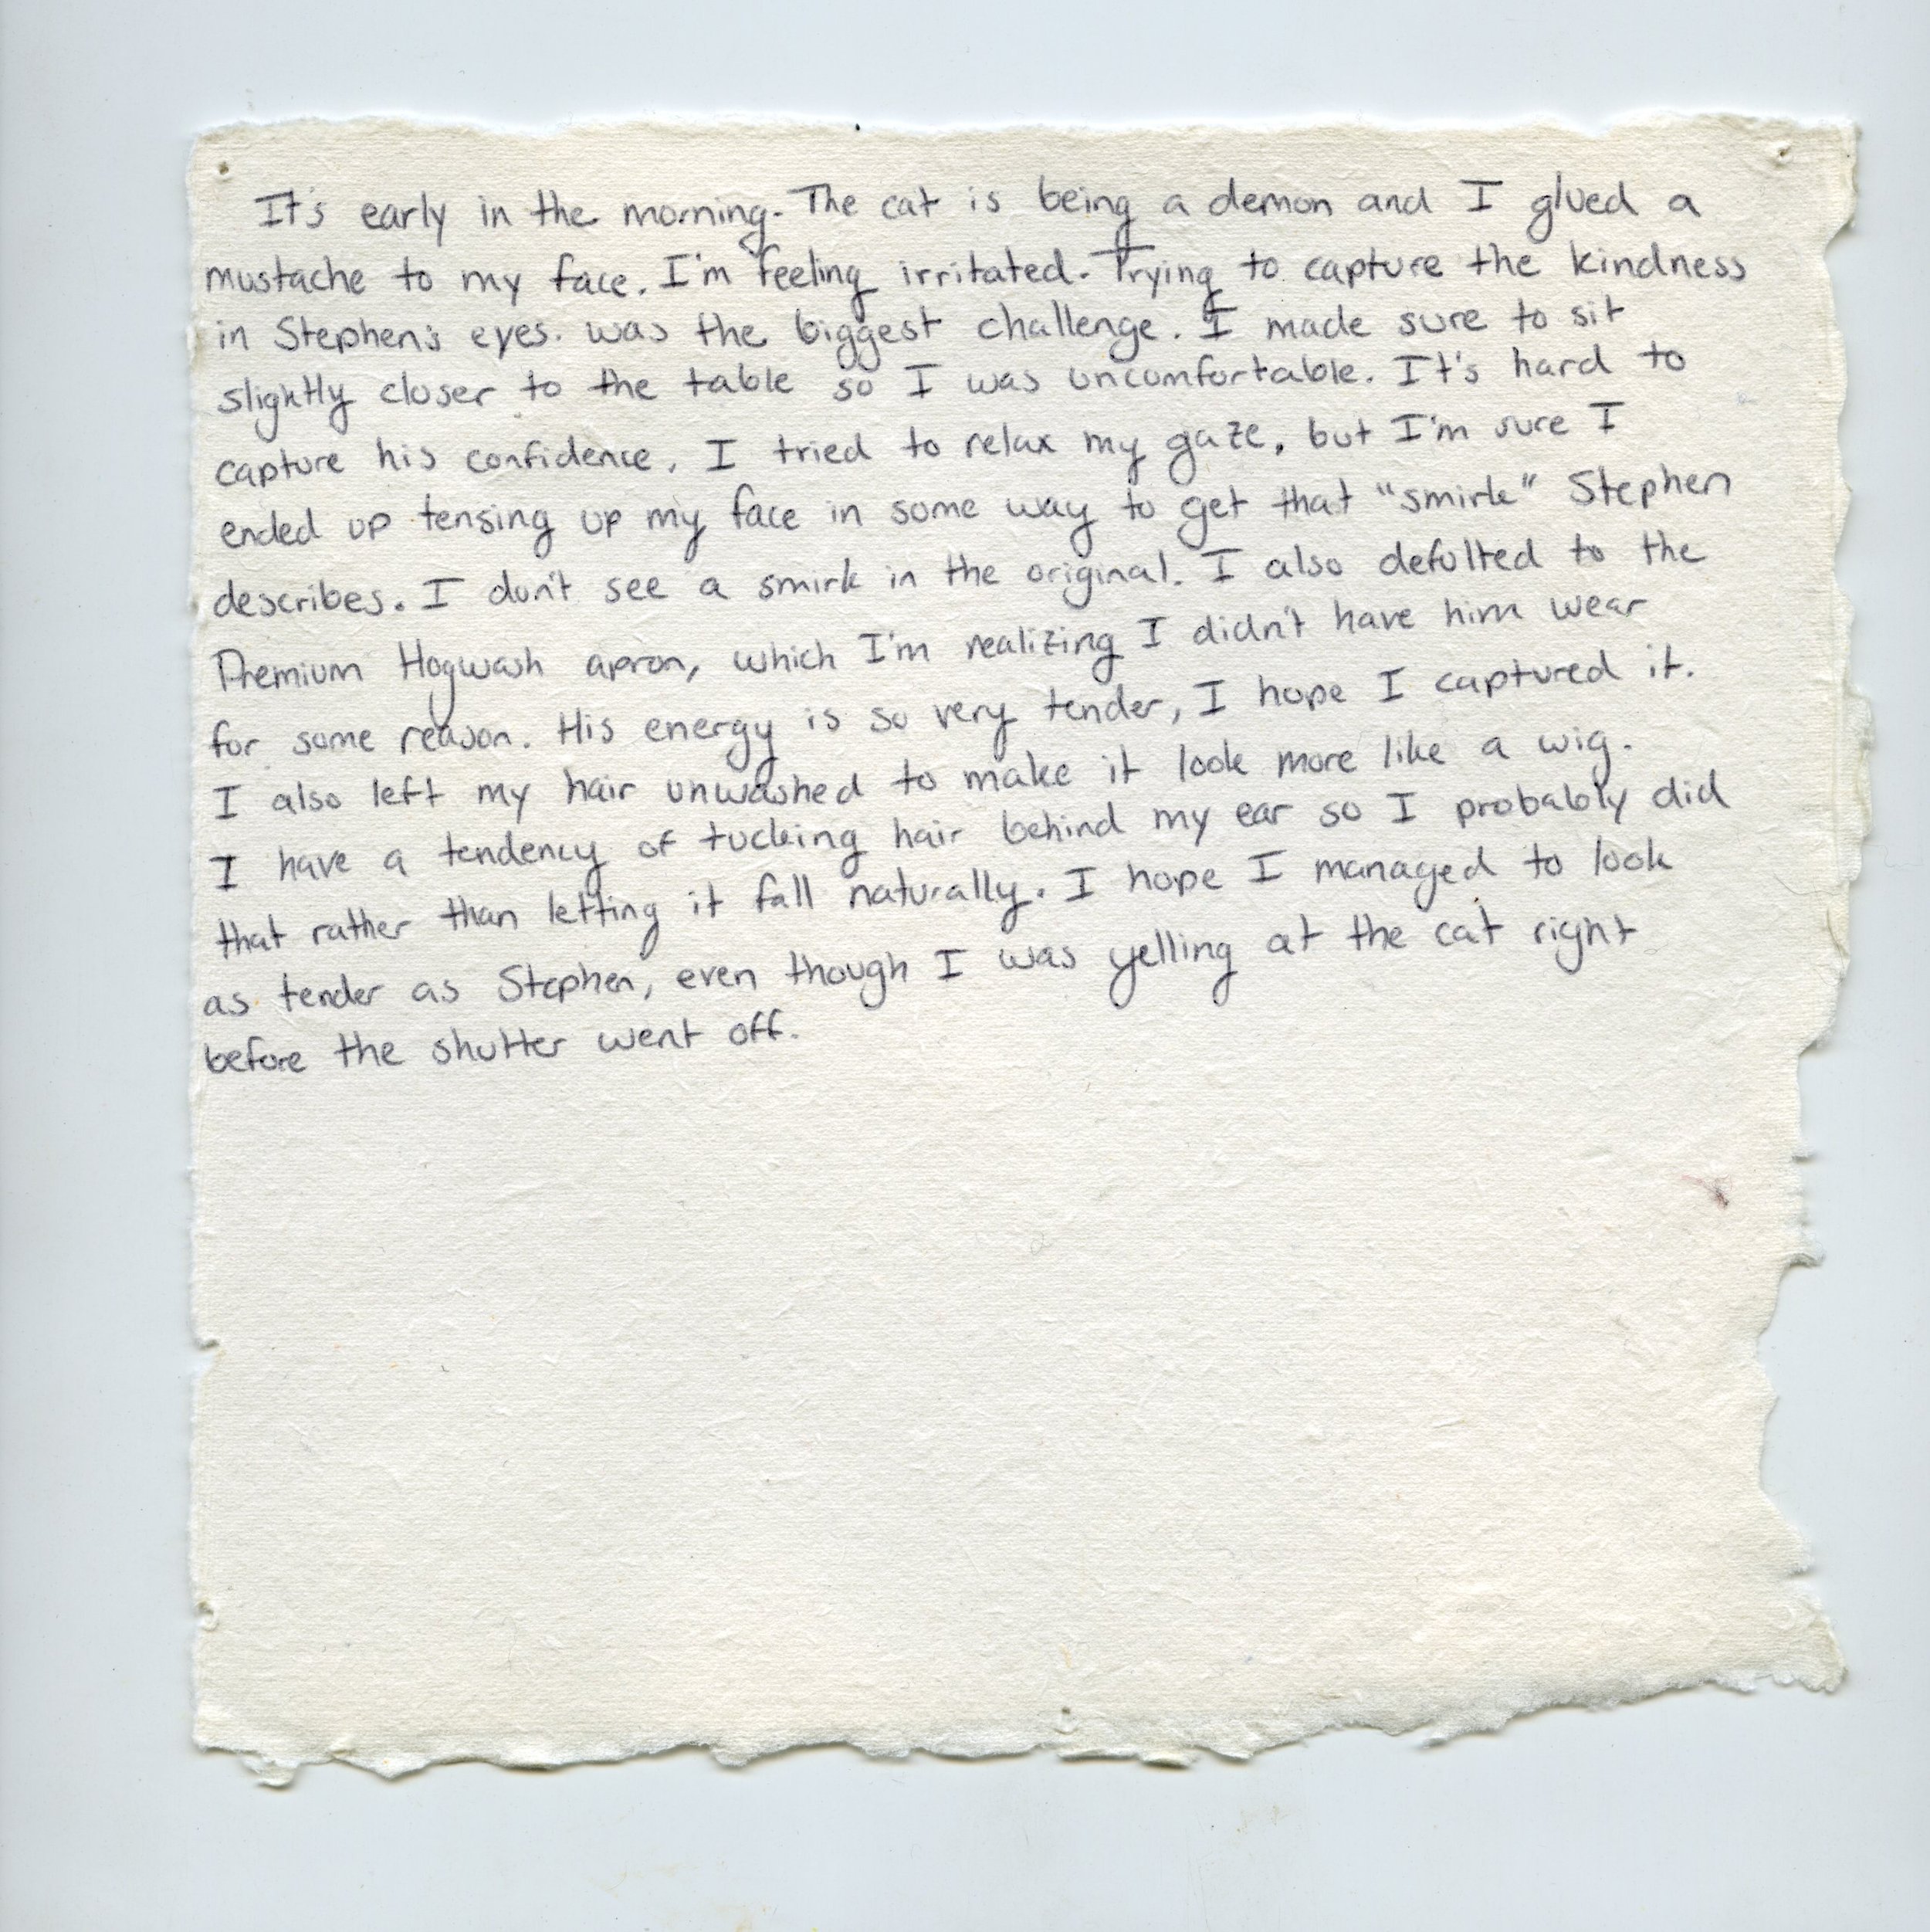 It's early in the morning. The cat is being a demon and I glued a
mustache to my face. I'm feeling irritated. Trying to capture the kindness
in Stephen's eyes. was the biggest challenge. I made sure to sit
slightly closer to the table so I was uncomfortable. It's hard to
capture his confidence. I tried to relax my gaze, but I'm sure I
ended up tensing up my face in some way to get that "smirk" Stephen
describes. I don't see a smirk in the original. I also defulted to the
Premium Hogwash apron, which I'm realizing I didn't have him wear
for some reason. His energy is so very tender, I hope I captured it.
I also left my hair unwashed to make it look more like a wig.
I have a tendency of tucking hair behind my ear so I probably did
that rather than letting it fall naturally. I hope I managed to look
as tender as Stephen, even though I was yelling at the cat right
before the shutter went off.